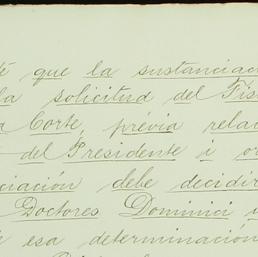 que la sustanciac
la solicitud del Fis
Corte, prévia rela
del Presidente i o
ciación debe decidir
Doctores Dominici
esa determinación